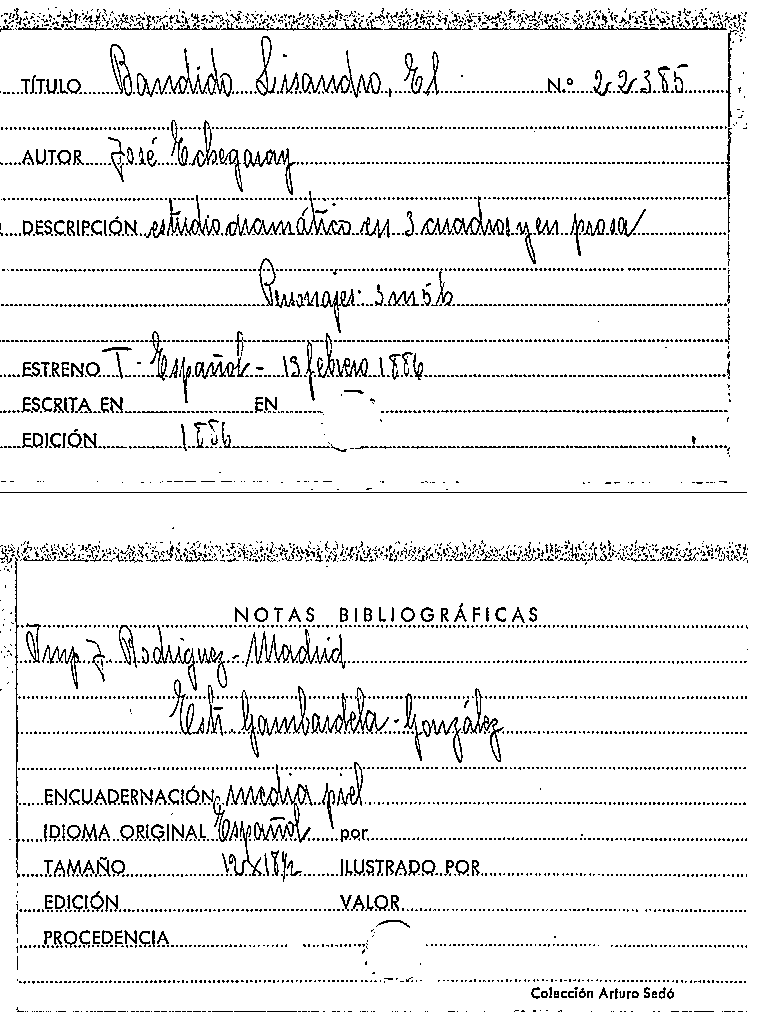 TÍTULO Bandido Lisandro, El N.º 22385
AUTOR José Echegaray
DESCRIPCIÓN estudio dramático en 3 cuadros y en prosa
Personajes: 3m5h
ESTRENO T. Español - 13 febrero 1886
ESCRITA EN EN
EDICIÓN 1886
NOTAS BIBLIOGRÁFICAS
Imp J. Rodriguez - Madrid
Estr. Gambardela - González
ENCUADERNACIÓN media piel
IDIOMA ORIGINAL Español por
TAMAÑO 12x18½ ILUSTRADO POR
EDICIÓN VALOR
PROCEDENCIA
Colección Arturo Sedó